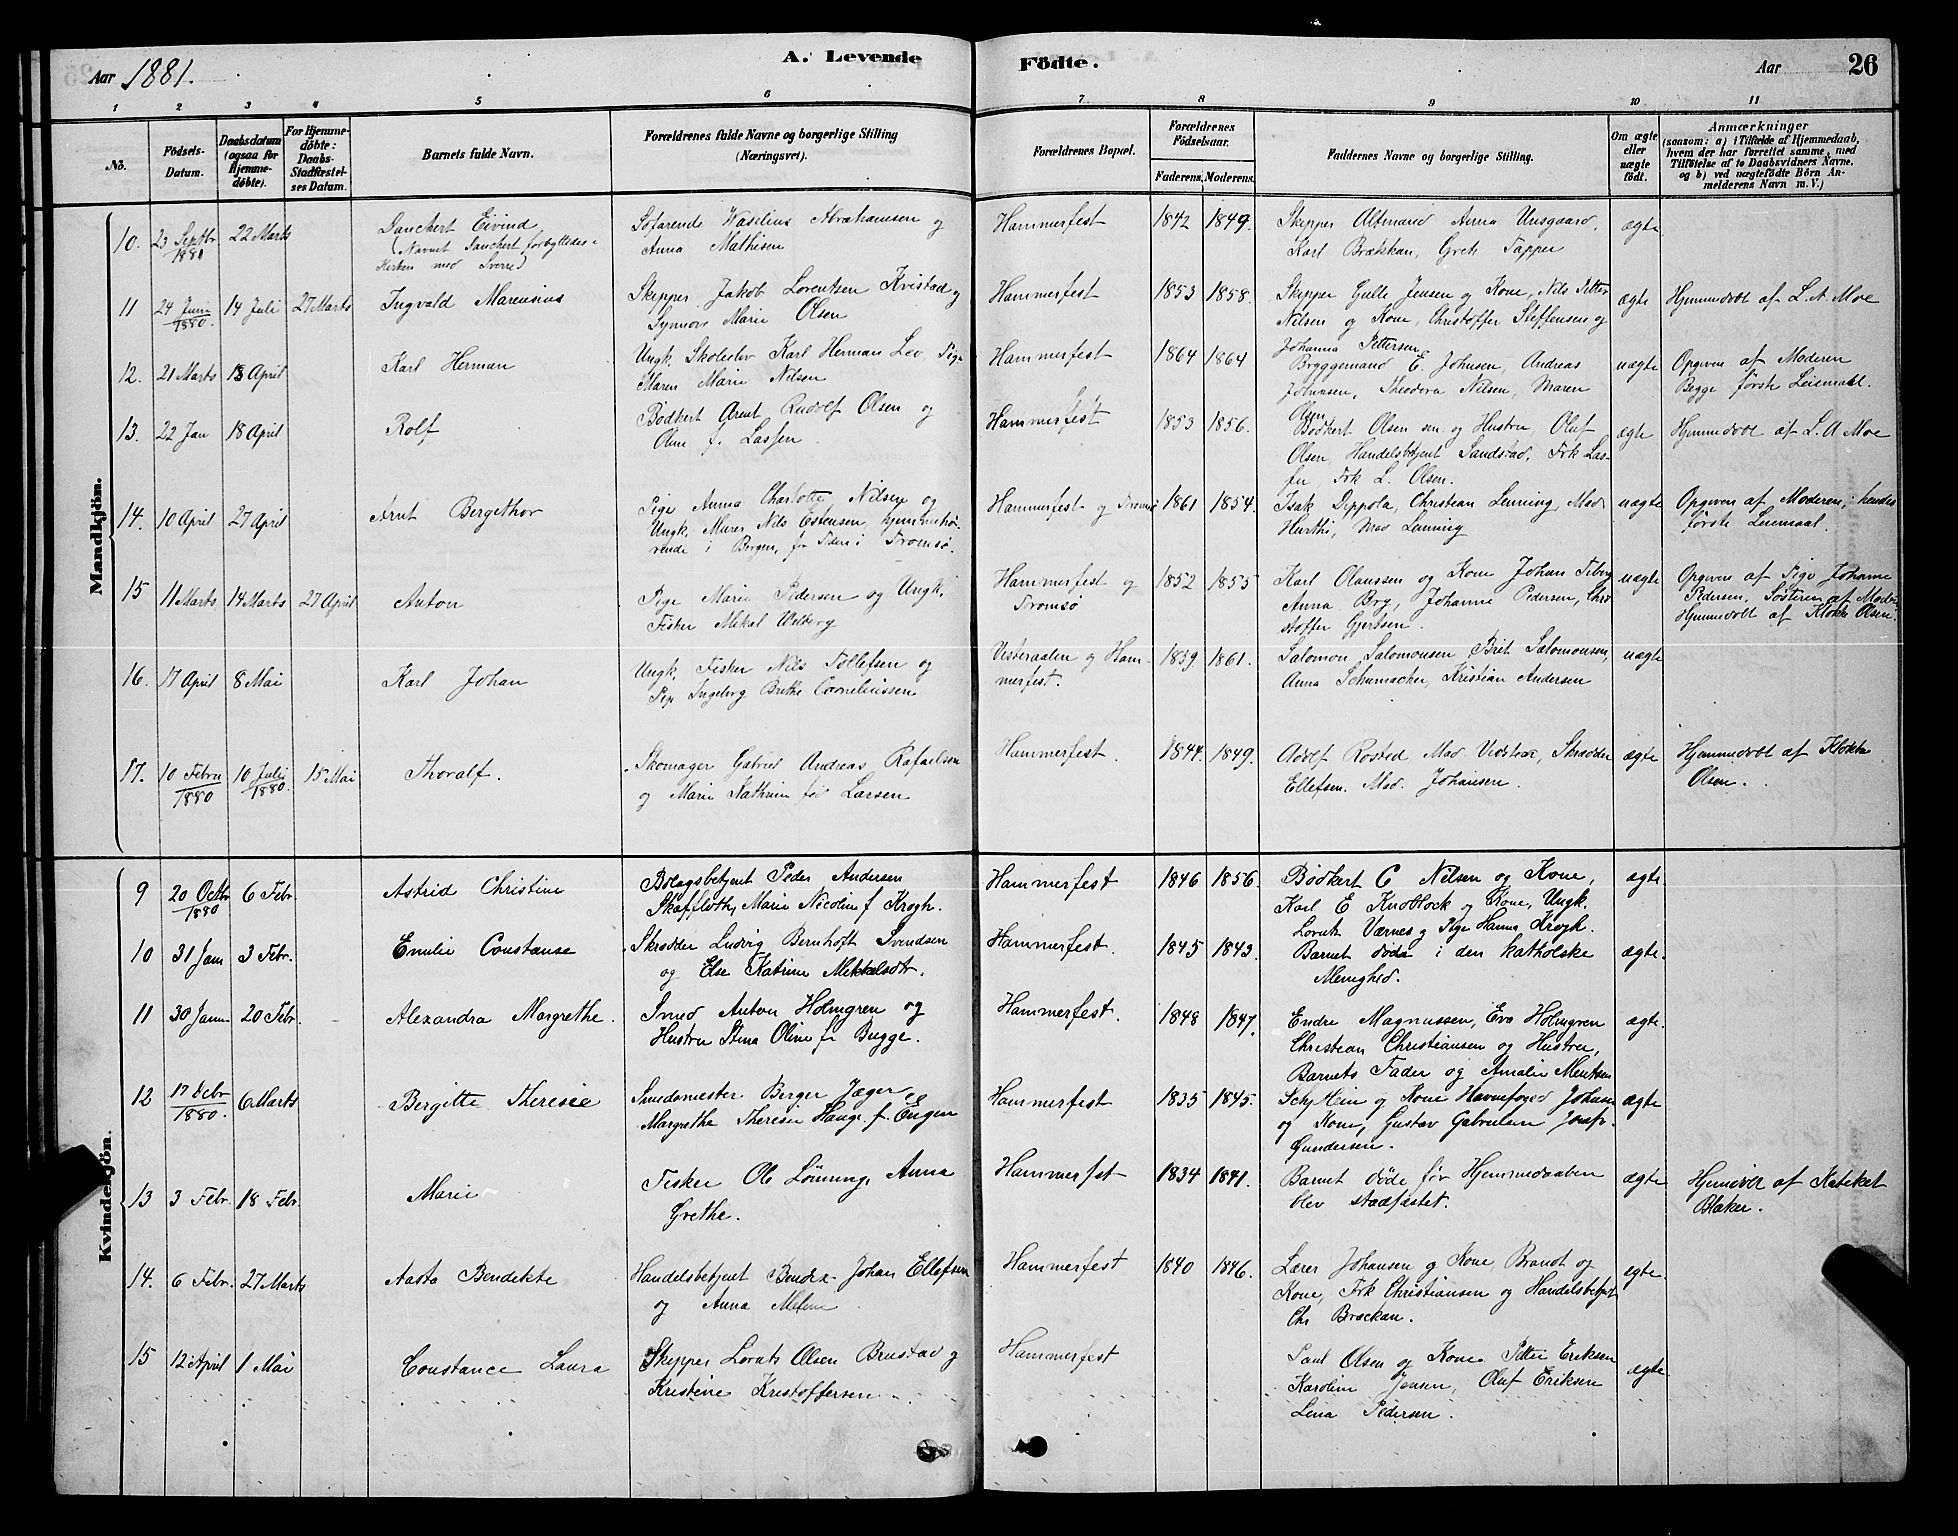 Aar 1881.
A. Levende Födte.
Aar 26
1 2 3 4 5 6 7 8 9 10 11
No.
Födsels-Datum.
Daabsdatum (ogsaa for Hjemme-döbte).
For Hjemme-döbte: Daabs-Stadfæstel-ses Datum.
Barnets fulde Navn.
Forældrenes fulde Navne og borgerlige Stilling
(Næringsvei).
Forældrenes Bopæl.
Forældrenes Födselsaar.
Faderens. Moderens.
Faddernes Navne og borgerlige Stilling.
Om ægte eller uægte födt.
Anmærkninger
(saasom: a) i Tilfælde af Hjemmedaab,
hvem der har forrettet samme, med
Tilföielse af to Daabsvidners Navne,
og b) ved uægtefödte Börn An-
melderens Navn m. V.)
Mandkjön.
10. 23 Septbr 1880 22 Marts Danchert Eivind
(Navnet Danchert forbyttedes i
Kirken med Sverre)
Söfarende Wasilius Abrahamsen og
Anna Mathisen
Hammerfest 1842 1849.
Skipper Altmand Anna Unsgaard,
Karl Brækkan, Grete Tapper
ægte
11 24 Juni 1880. 14 Juli 27 Marts Ingvald Marensius
Skipper Jakob Lorentsen Kvistad og
Synnöv Marie Olsen
Hammerfest 1853 1858.
Skipper Gulle Jensen og Kone, Nils Petter
Nilsen og Kone, Christoffer Steffensen og
Johanna Pettersen
ægte Hjemmedöbt af L. A. Moe
12. 21 Marts 18 April Karl Herman
Ungk. Karl Herman Pige
Maren Marie Nilsen
Hammerfest 1864 1864
Bryggemand E. Johnsen, Andreas
Johnsen, Theodora Nilsen, Maren
Olsen
uægte Opgiven af Moderen
Begge förste Leiemaal.
13. 22 Jan 18 April Rolf
Bödkert Arent Rudolf Olsen og
Oline f. Lassen.
Hammerfest 1853 1856.
Bödkert Olsen sen. og Hustru, Oluf
Olsen, Handelsbetjent Sandstad, Frk Las-
sen, Frk L. Olsen.
ægte Hjemmedöbt af L. A Moe
14. 10 April 27 April Arnt Bergethor
Pige Anna Charlotte Nilsen og
Ungk. Murer Nils Estensen, hjemmehö-
rende i Bergen, for Tiden i Tromsö.
Hammerfest og Tromsö 1861 1854.
Isak Dippola, Christian Lunning, Mad
Hurthi, Mad Lunning
uægte Opgiven af Moderen, hendes
förste Leiemaal.
15 11 Marts 14 Marts 27 April Anton
Pige Marie Pedersen og Ungk.
Fisker Mikal Welberg
Hammerfest og
Tromsö
1852 1855
Karl Olaussen og Kone Johan Tiberg
Anna Brg, Johanne Pedersen, Chri
stoffer Gjertsen.
uægte Opgiven af Pige Johanne
Pedersen, Söster af Moderen
Hjemmedöbt af Klokk Olsen.
16. 17 April 8 Mai Karl Johan
Ungk. Fisker Nils Tollefsen og
Pige Ingeborg Birthe Corneliussen
Vesteraalen og Ham-
merfest.
1839 1861.
Salomon Salomonsen, Brit Salomonsen,
Anna Schumacher, Kristian Andersen
uægte
17. 10 Febru 1880 10 Julie 1880. 15 Mai Thoralf.
Skomager Gabriel Andreas Rafaelsen
og Marie Kathrine föd Larsen
Hammerfest. 1844. 1849.
Adolf Rostad Mad Vidstrøe, Skrædder
Ellefsen. Mad. Johansen.
ægte Hjemmedöbt af Klokk
Olsen.
Kvindekjön.
9 20 Octbr 1880 6 Febr. Astrid Christine
Bolagsbetjent Peder Andersen
Skafloth, Marie Nicoline f Krogh.
Hammerfest 1846 1856.
Bödkert C Nilsen og Kone,
Karl E Knoblock og Kone, Ungk.
Lorentz Værnes og Pige Hanna Krogh.
ægte
10 31 Jan 3 Febr. Emilie Constanse
Skrædder Ludvig Bernhoft Svendsen
og Else Katrine Mikkelsdtr.
Hammerfest. 1845 1843.
Barnet döde i den katholske
Menighed.
ægte.
11 30 Janu 20 Febr. Alexandra Margrethe.
Smed Anton Holmgren og
Hustru Stina Oline f. Bugge.
Hammerfest. 1848 1847.
Endre Magnussen, Eva Holmgren
Christian Christiansen og Hustru,
Barnets Fader og Amalie Mentsen
ægte.
12 17 Febr 1880. 6 Marts Bergitte Theresie
Smedemester Berger Jæger,
Margrethe Theresie Hauge f. Engen
Hammerfest 1835 1845.
og Kone Havnefoged Johnsen
og Kone, Gustav Gabrielsen Josef
Gundersen.
ægte
13 3 Febr. 18 Febr. Marie
Fisker Ole Lönning, Anna
Grethe.
Hammerfst 1834 1841.
Barnet döde för Hjemmedaaben
blev stadfæstet.
ægte Hjemdöbt af Kateket
Blaker.
14. 6 Febr. 27 Marts Aasta Bendikte
Handelsbetjent Bendix Johan Ellefsen
og Anna Malene
Hammerfest 1840 1846.
Lærer Johansen og Kone, Brandt og
Kone, Frk Christiansen og Handelsbetjent
Chr Brækkan.
ægte.
15 12 April 1 Mai Constance Laura
Skipper Lorents Olsen Brustad og
Kristine Kristoffersen
Hammerfest
Paul Olsen og Kone Petter Eriksen
Karoline Jensen, Oluf Eriksen
Lena Pedersen.
ægte